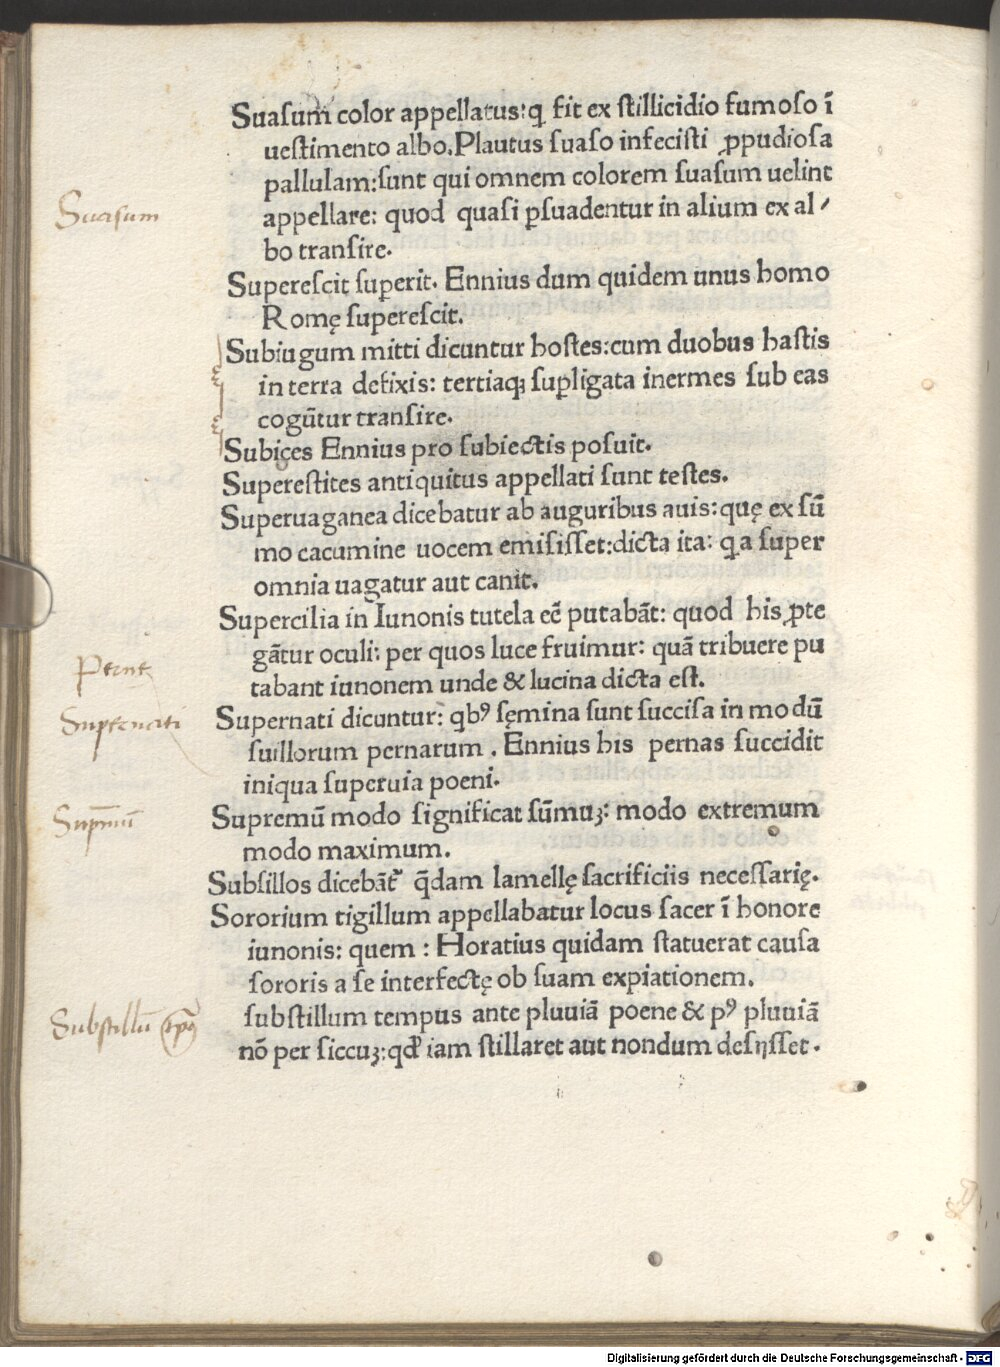 Suaſum color appellatus:ꝙ fit ex ſtillicidio fumoſo ī
ueſtimento albo.Plautus ſuaſo infeciſti ꝓpudioſa
pallulam:ſunt qui omnem colorem ſuaſum uelint
appellare: quod quaſi ꝑſuadentur in alium ex al⸗
bo tranſire.
Suasum
Supereſcit ſuꝑerit. Ennius dum quidem unus homo
Romę ſupereſcit.
Subiugum mitti dicuntur hoſtes:cum duobus haſtis
in terra defixis: tertiaqꝫ ſuꝑligata inermes ſub eas
cogūtur tranſire.
Subices Ennius pro ſubiectis poſuit.
Supereſtites antiquitus appellati ſunt teſtes.
Superuaganea dicebatur ab auguribus auis:quę ex ſū
mo cacumine uocem emiſiſſet:dicta ita: ꝙa ſuper
omnia uagatur aut canit.
Supercilia in Iunonis tutela eē putabāt: quod his ꝓte
gātur oculi: per quos luce fruimur: quā tribuere pu
tabant iunonem unde & lucina dicta eſt.
Pernę
Supernati
Supernati dicuntur: qbꝰ fęmina ſunt ſucciſa in modū
ſuillorum pernarum . Ennius his pernas ſuccidit
iniqua ſuperuia poeni.
Supmū
Supremū modo ſignificat ſūmuꝫ: modo extremum
modo maximum.
Subſillos dicebāt᷑ q̄dam lamellę ſacrificiis neceſſarię.
Sororium tigillum appellabatur locus ſacer ī honore
iunonis: quem : Horatius quidam ſtatuerat cauſa
ſororis a ſe interfectę ob ſuam expiationem.
Substillū tp̄s
ſubſtillum tempus ante pluuiā poene & pꝰ pluuiā
nō per ſiccuꝫ:qđ iam ſtillaret aut nondum deſijſſet.
Digitalisierung gefördert durch die Deutsche Forschungsgemeinschaft - DFG